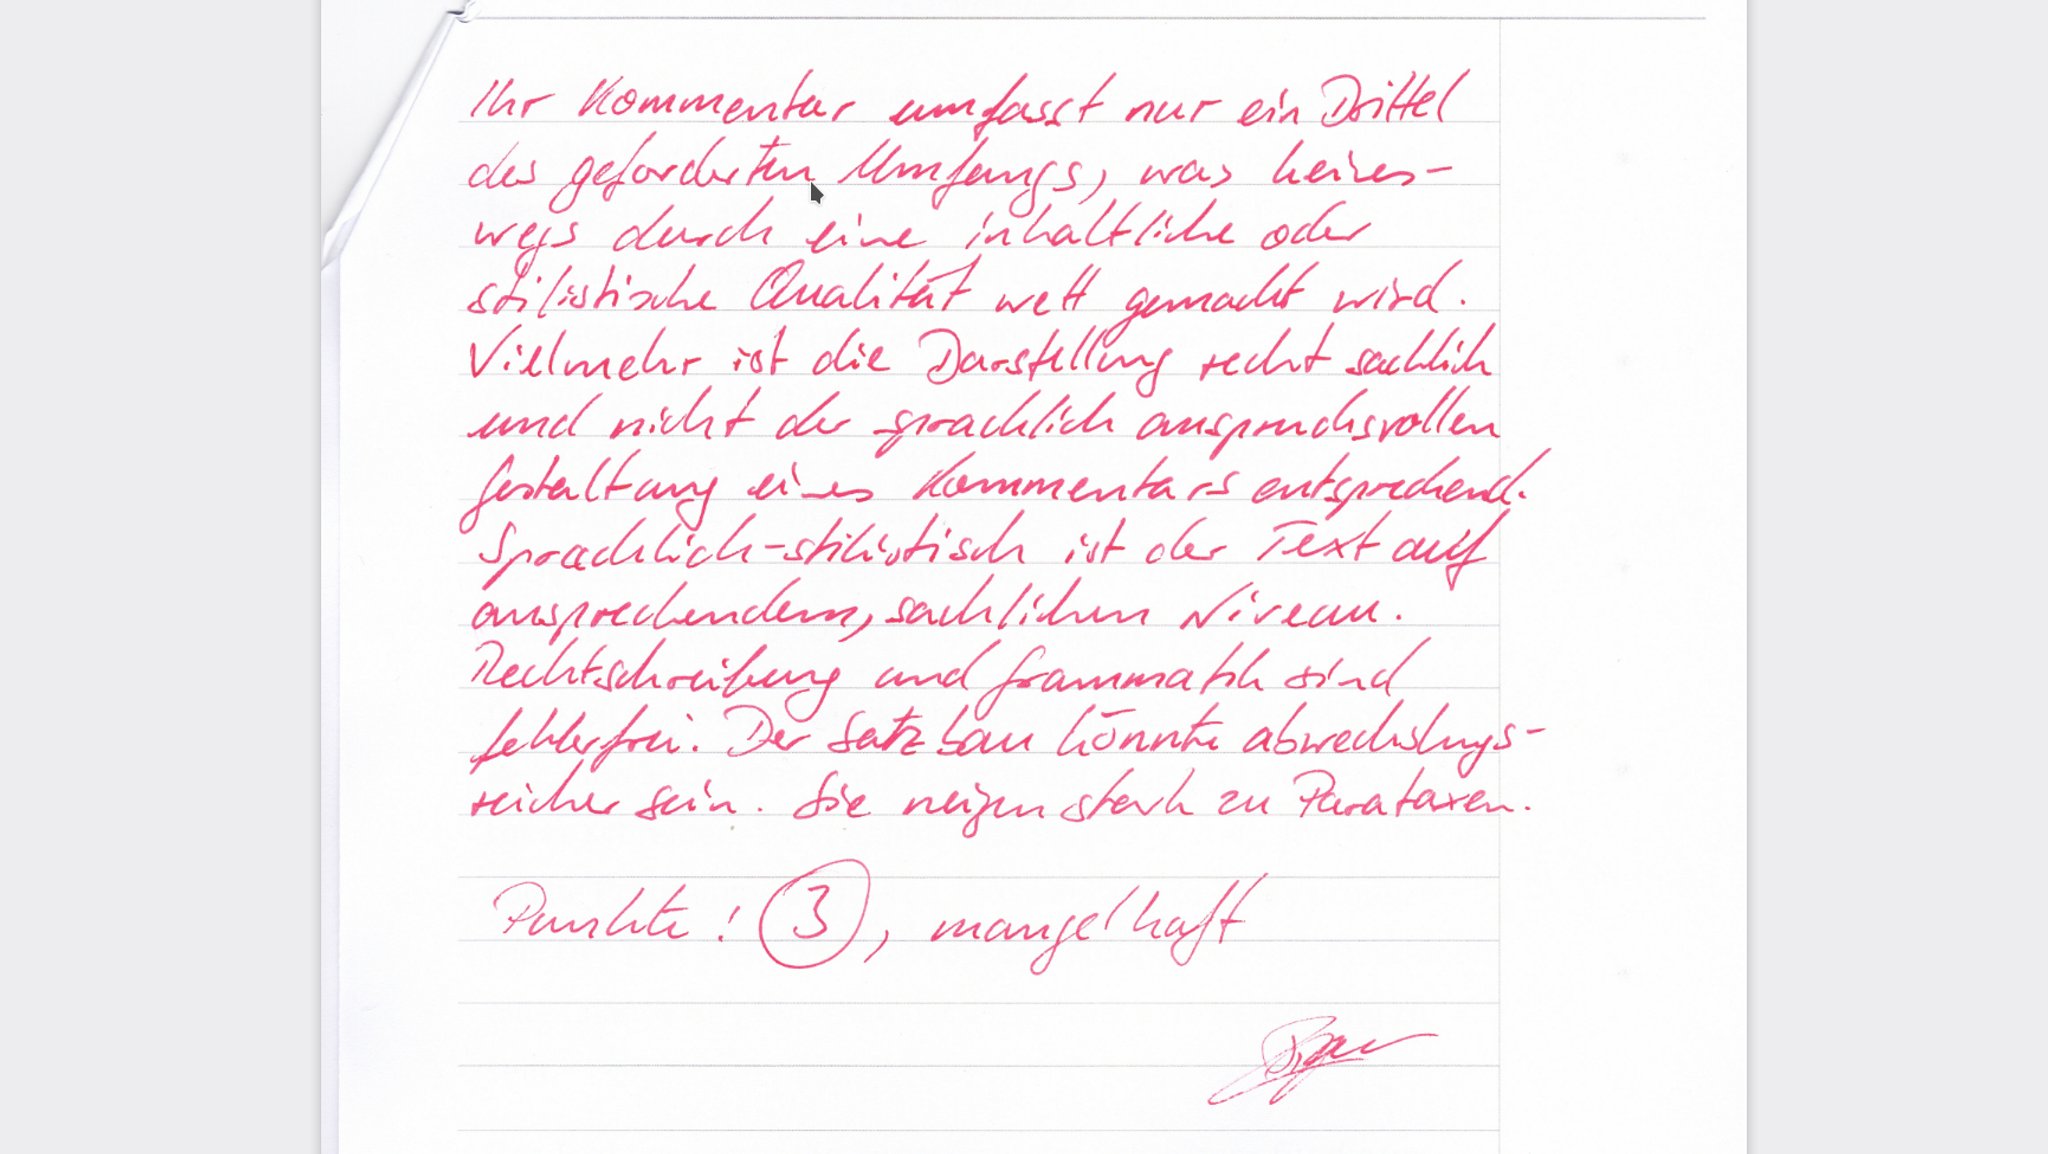 Ihr Kommentar umfasst nur ein Drittel
des geforderten Umfangs, was keines-
wegs durch eine inhaltliche oder
stilistische Qualität wett gemacht wird.
Vielmehr ist die Darstellung recht sachlich
und nicht der sprachlich anspruchsvollen
Gestaltung eines Kommentars entsprechend.
Sprachlich-stilistisch ist der Text auf
ansprechendem, sachlichen Niveau.
Rechtschreibung und Grammatik sind
fehlerfrei. Der Satzbau könnte abwechslungs-
reicher sein. Sie neigen stark zu Parataxen.
Punkte: 3, mangelhaft